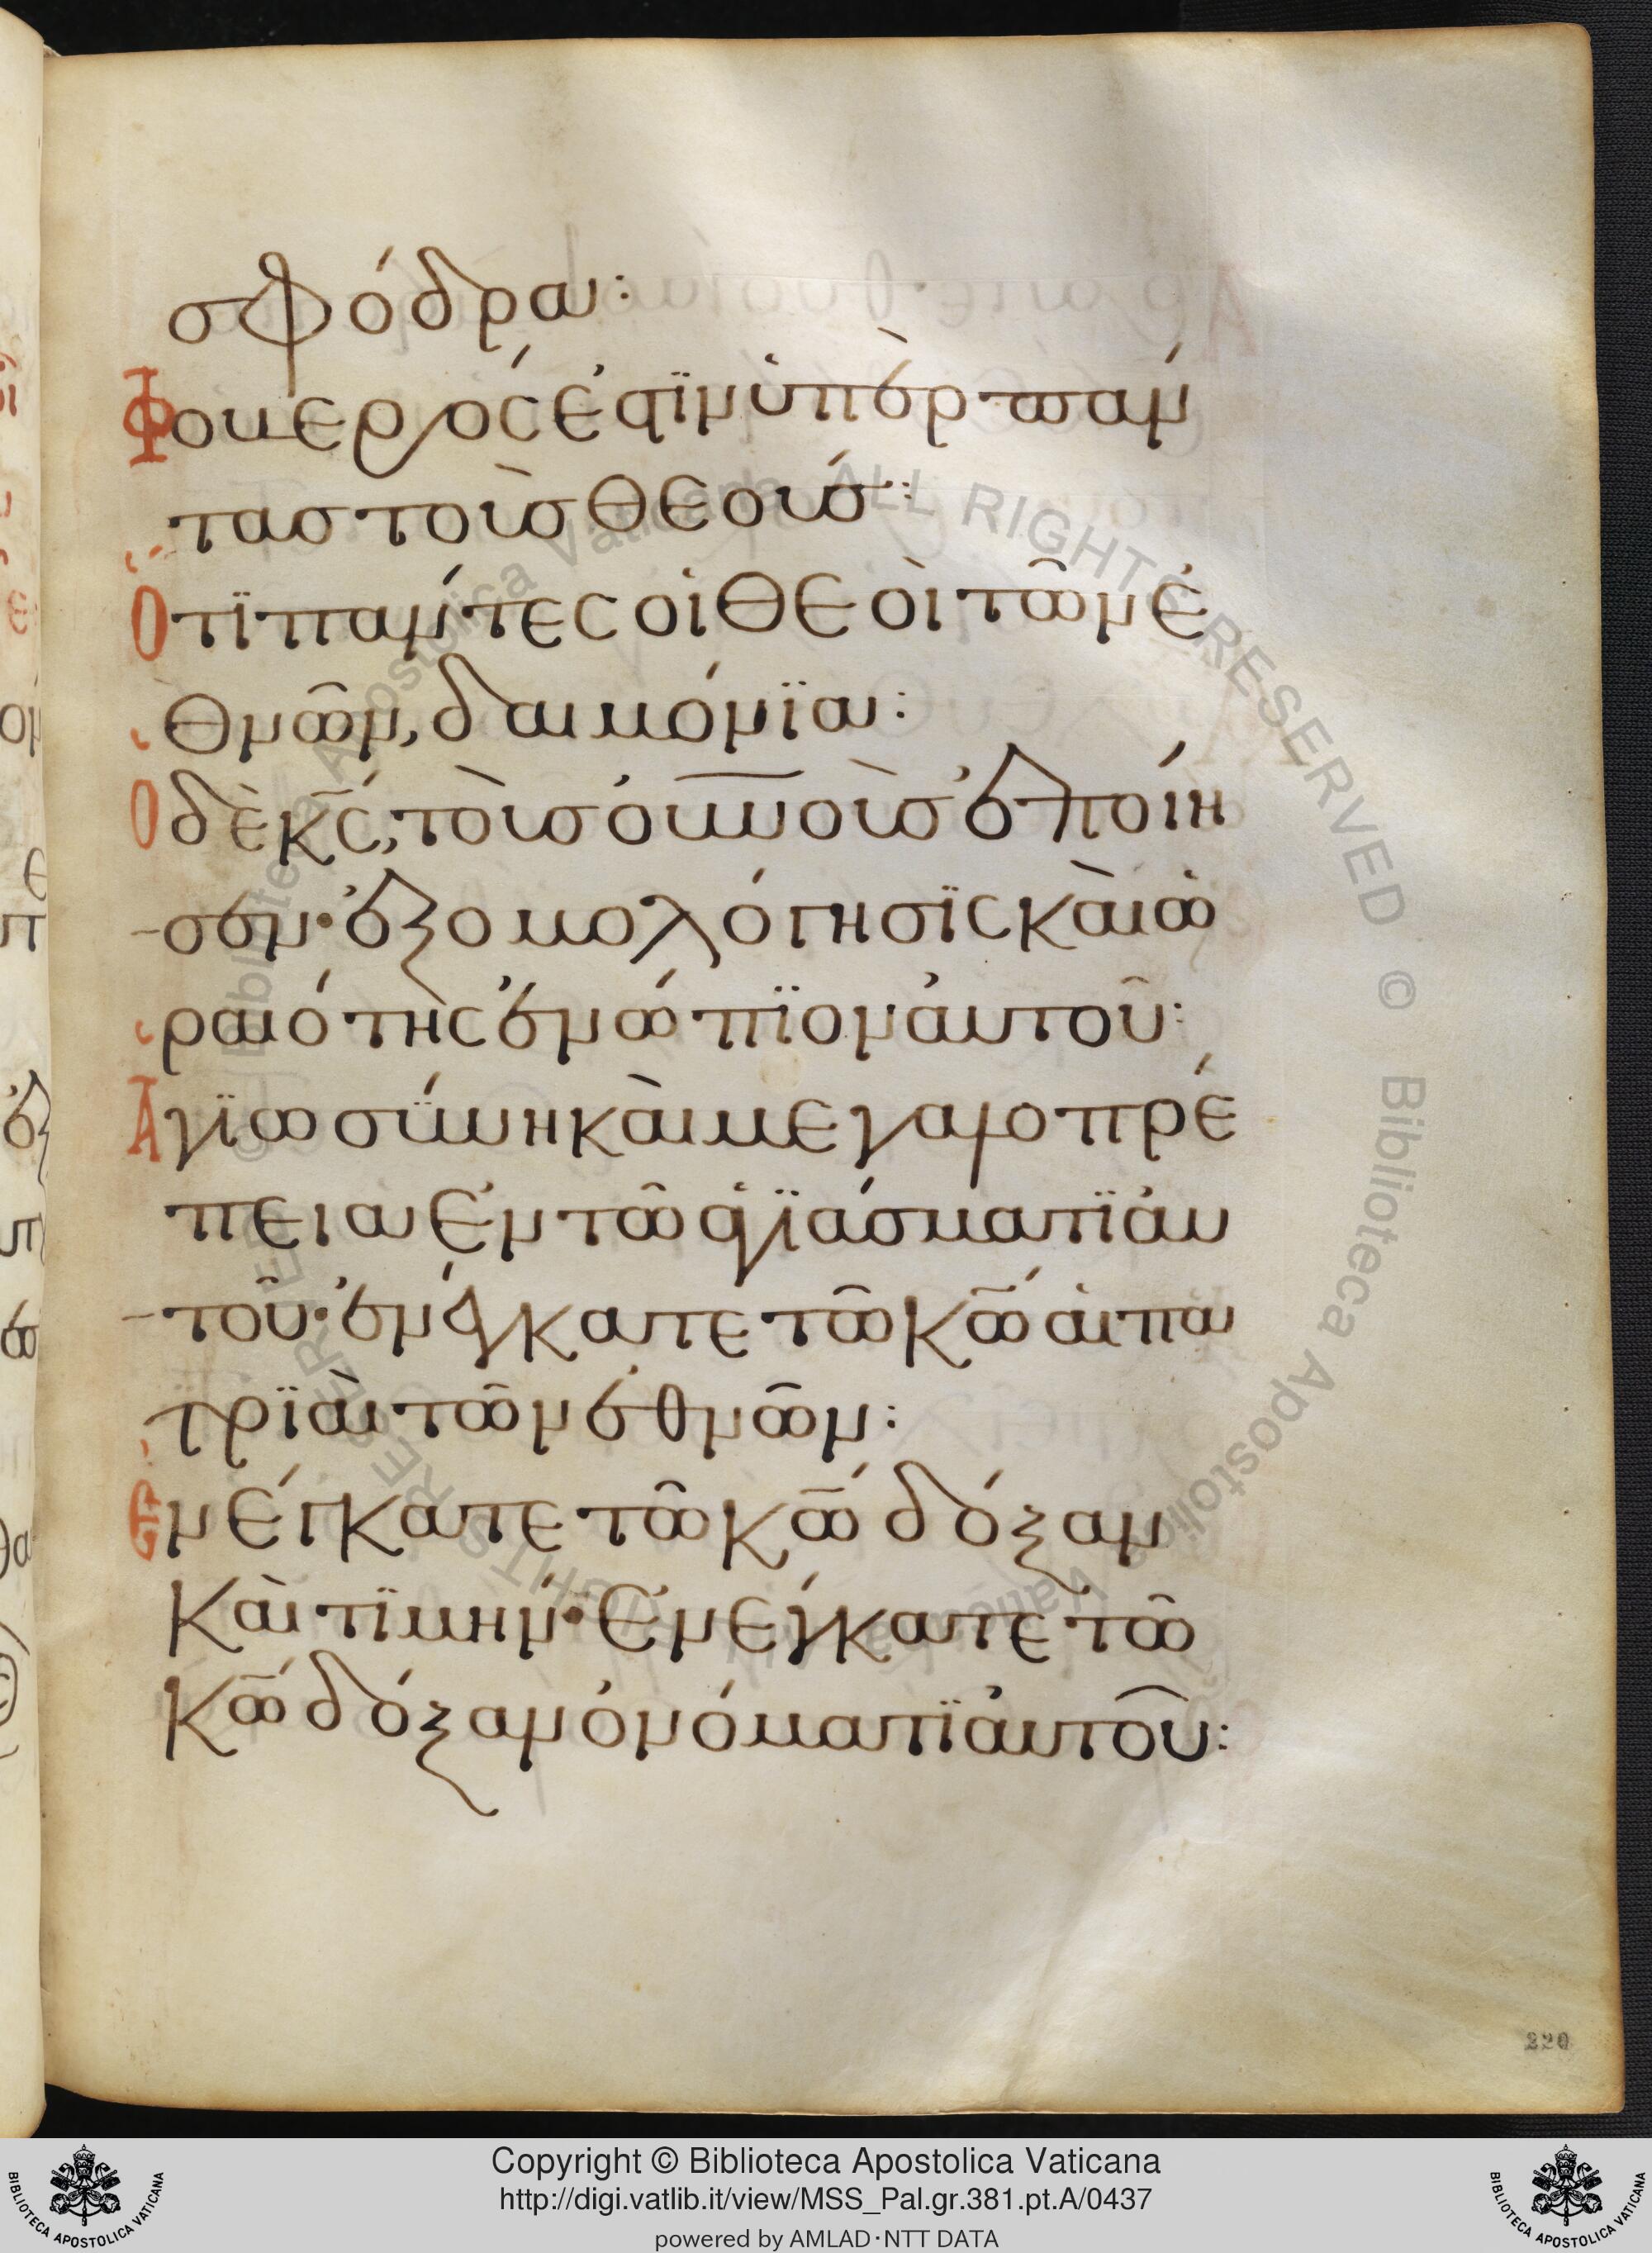 σφόδρα:
Φουερός ἐστϊν ὑπὲρ πάν
τας τοὺς θεούς:
Ὅτϊ πάντες οἱ θεοὶ τῶν ἐ
θνῶν, δαιμόνϊα:
Ὁ δὲ κς, τοὺς οὐνοὺς ἐποίη
σεν· ἐξομολόγησϊς καὶ ὡ
ραιότης ἐνώπϊον ἀυτοῦ:
Ἁγϊωσύνη καὶ μεγαλοπρέ
πεια ἐν τῶ ἁγϊάσματϊ ἀυ
τοῦ· ἐνέγκατε τῶ κω ἁι πα
τρϊαὶ τῶν ἐθνῶν:
Ἐνέγκατε τῶ κω δόξαν
καὶ τϊμήν· ἐνέγκατε τῶ
κω δόξαν ὀνόματϊ ἀυτοῦ:
220
Copyright © Biblioteca Apostolica Vaticana
http://digi.vatlib.it/view/MSS_Pal.gr.381.pt.A/0437
powered by AMLAD·NTT DATA
BIBLIOTECA APOSTOLICA VATICANA
BIBLIOTECA APOSTOLICA VATICANA